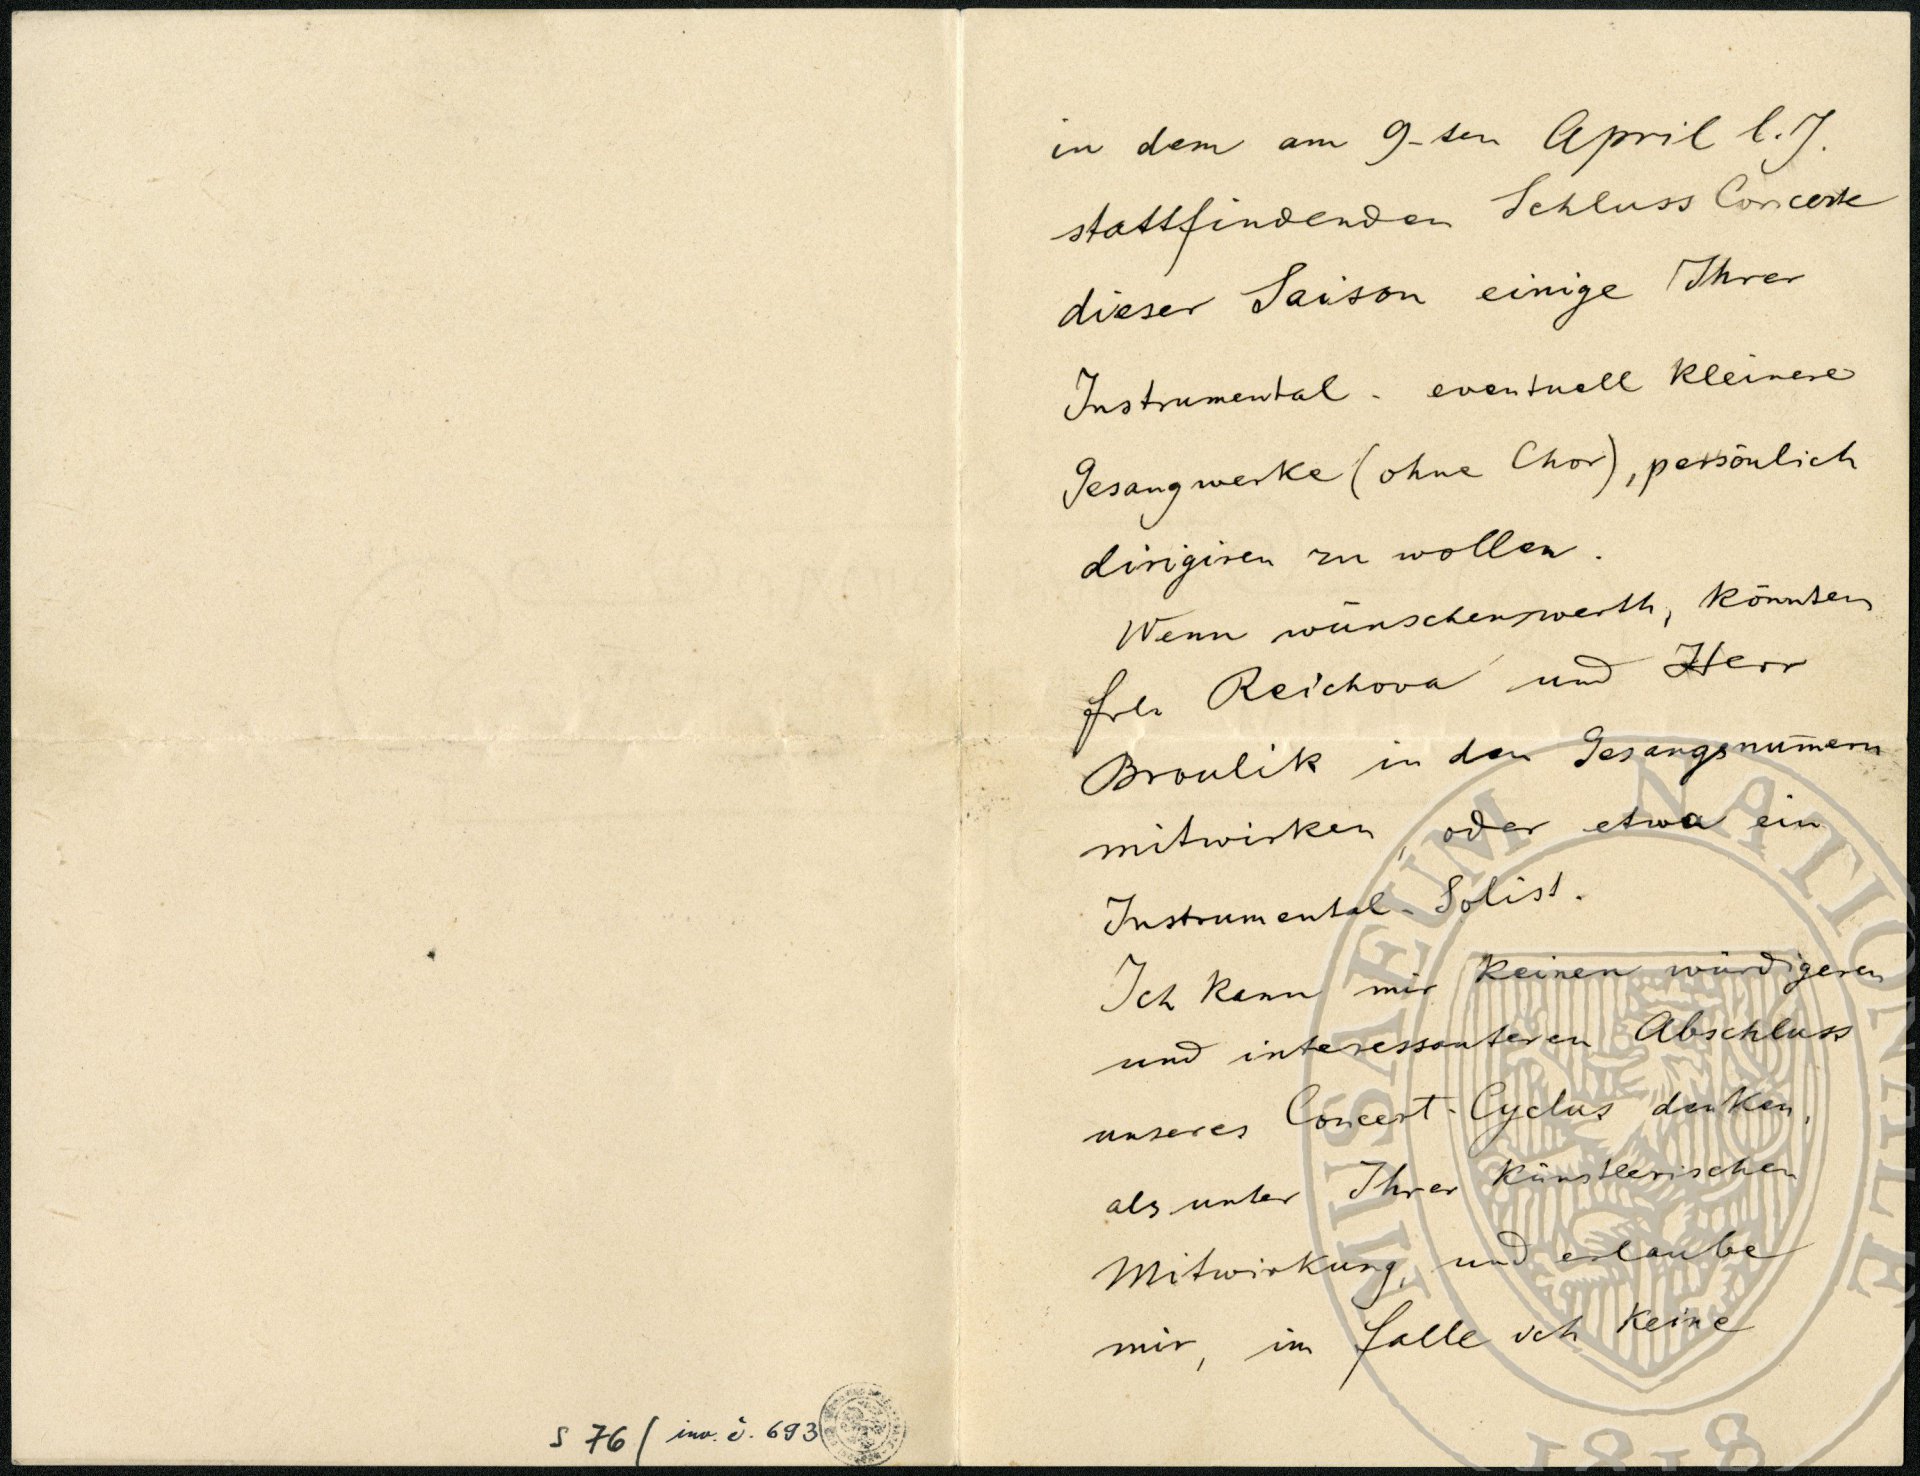 in dem am 9-ten April l. J.
stattfindenden Schluss Concerte
dieser Saison einige Ihrer
Instrumental - eventuell kleinere
Gesangwerke (ohne Chor), persönlich
dirigiren zu wollen.
Wenn wünschenswerth, könnten
Frl. Reichova und Herr
Broulik in den Gesangsnum̄ern
mitwirken, oder etwa ein
Instrumental-Solist.
Ich kann mir keinen würdigeren
und interessanteren Abschluss
unseres Concert-Cyclus denken,
als unter Ihrer künstlerischen
Mitwirkung, und erlaube
mir, im falle ich keine
S 76 / inv. č. 693
MUSAEUM NATIONALE
1818